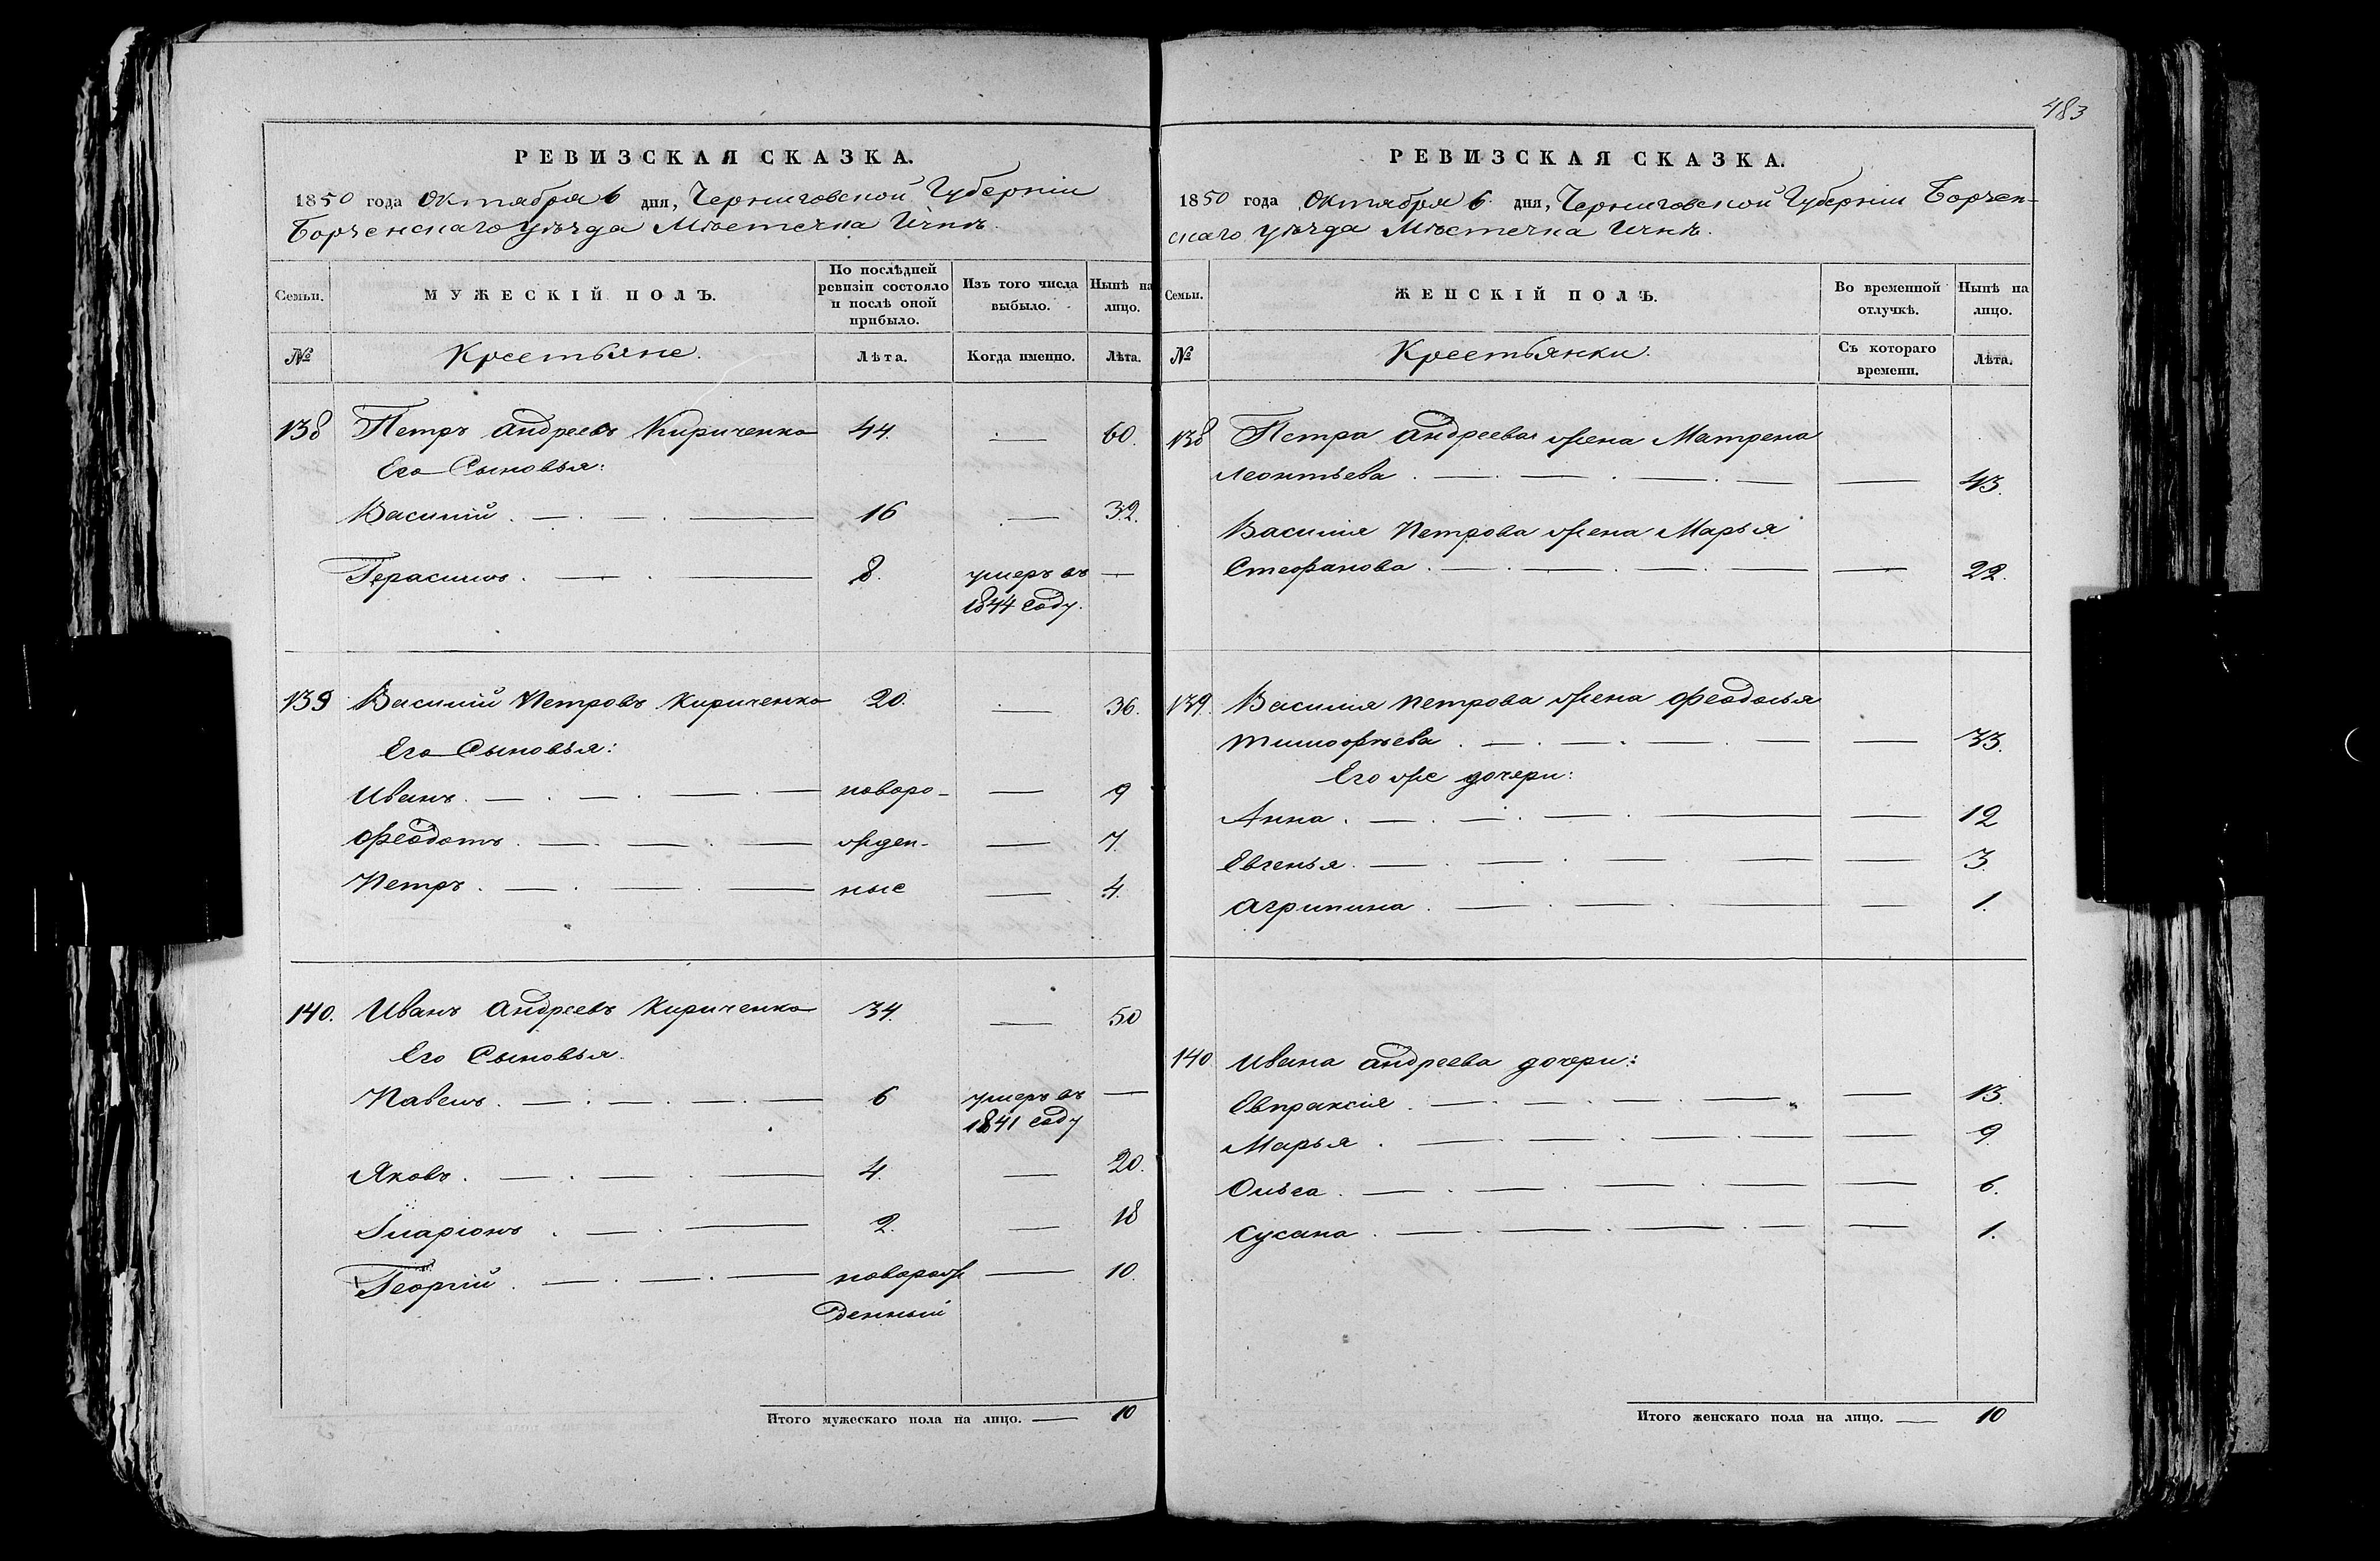 РЕВИЗСКАЯ СКАЗКА.
1850 года Октября 6 дня, Черниговской Губерніи
Борзенскаго уѣзда Мѣстечка Ични.
Семьи. МУЖЕСКІЙ ПОЛЪ. По послѣдней ревизіи состояло и послѣ оной прибыло. Изъ того числа выбыло. Нынѣ на лицо.
№ Крестьяне. Лѣта. Когда именно. Лѣта.
138 Петръ Андреевъ Кириченко 44. — 60.
Его Сыновья:
Василий . — . — . — 16 — 32.
Герасимъ . — . — 8. умеръ въ —
1844 году.
139 Василий Петровъ Кириченко 20. — 36.
Его Сыновья:
Иванъ . — . — . — . — новоро- — 9
Феодотъ . — . — . — жден- — 7.
Петръ . — . — . — ные — 4.
140. Иванъ Андреевъ Кириченко 34. — 50
Его Сыновья.
Павелъ . — . — . — . — 6 умеръ въ —
1841 году
Яковъ . — . — . — 4. — 20.
Иларіонъ . — . — 2. — 18
Георгій . — . — . — новорож — 10.
денный
Итого мужескаго пола на лицо. — 10
483
РЕВИЗСКАЯ СКАЗКА.
1850 года Октября 6 дня, Черниговской Губерніи Борзен-
скаго уѣзда Мѣстечка Ични.
Семьи. ЖЕНСКІЙ ПОЛЪ. Во временной отлучкѣ. Нынѣ на лицо.
№ Крестьянки. Съ котораго времени. Лѣта.
138 Петра Андреева жена Матрена
Леонтьева . — . — . — . — — 43.
Василия Петрова жена Марья
Стефанова . — . — . — . — — 22.
139. Василия Петрова жена Феодосья
Тимофѣева . — . — . — . — — 33.
Его же дочери:
Анна . — . — . — . — — 12
Евгенья . — . — . — — — 3.
Агрипина . — . — . — — 1.
140 Ивана Андреева дочери:
Евпраксія . — . — . — . — — 13.
Марья . — . — . — . — — 9.
Ольга . — . — . — . — — 6.
Сусана . — . — . — . — — 1.
Итого женскаго пола на лицо. — 10